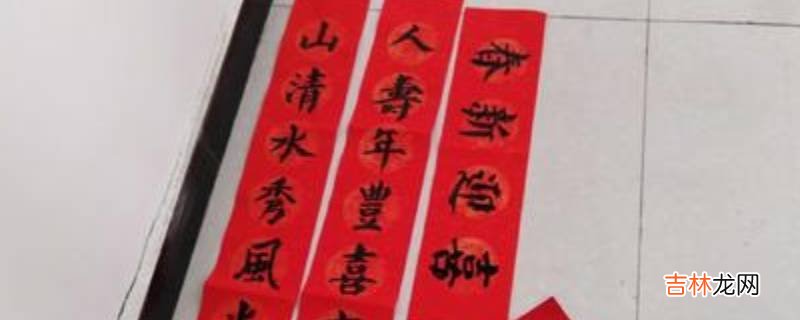 山清水秀風
人壽年豐喜
喜迎新春
吉林龙网